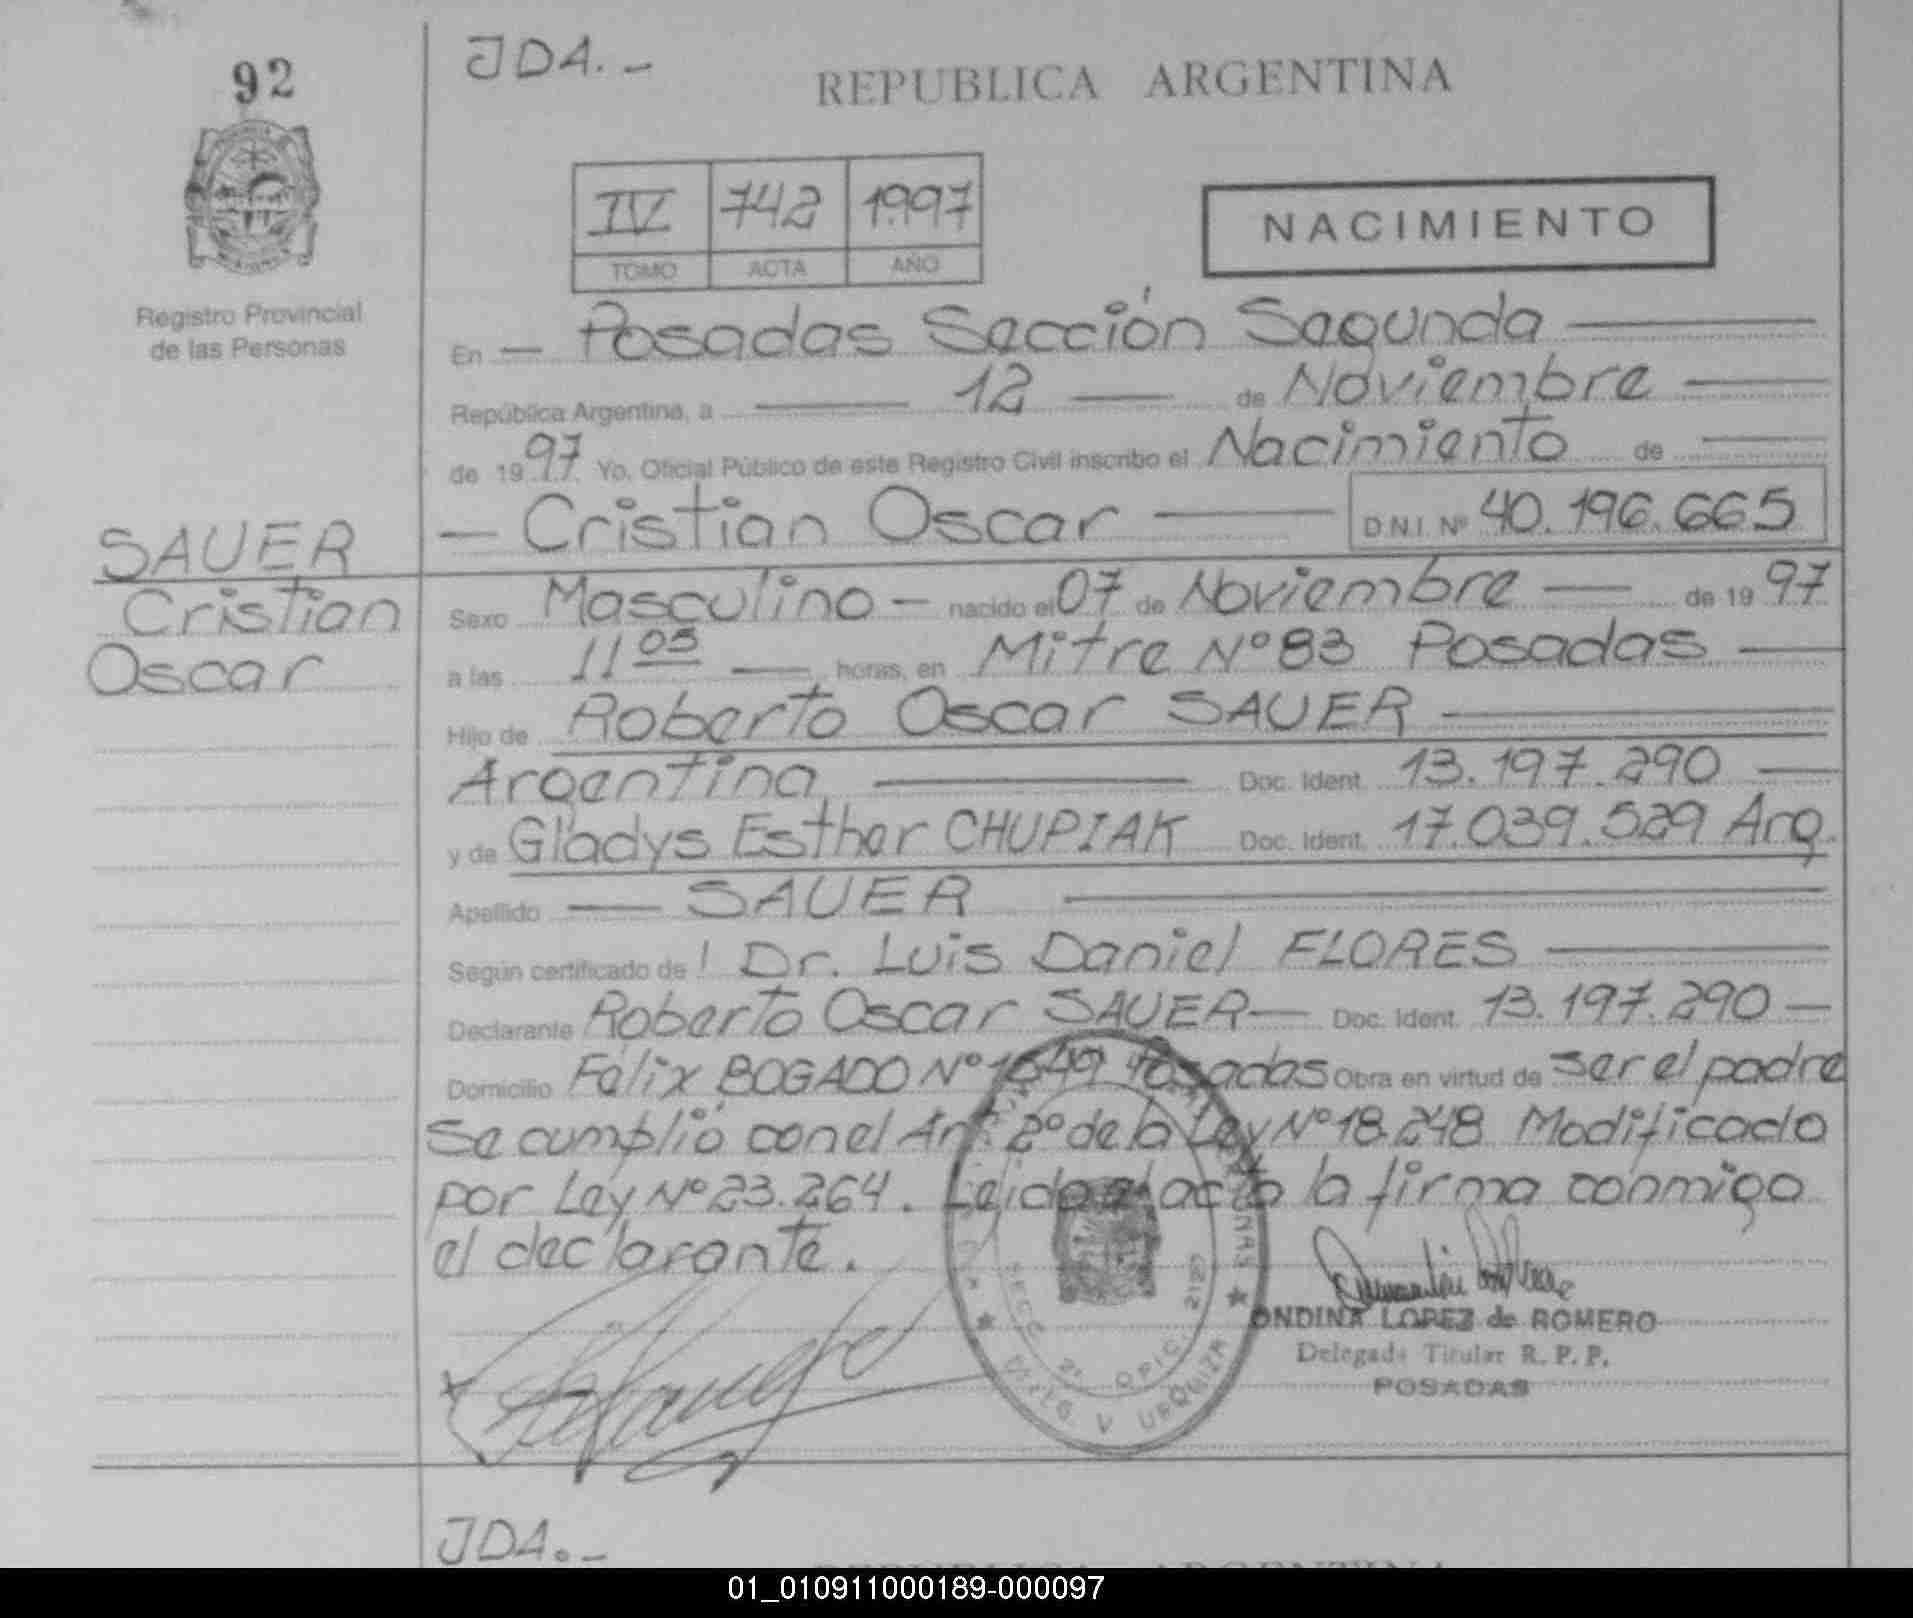 92
JDA.-
REPUBLICA ARGENTINA
IV 742 1997
TOMO ACTA AÑO
NACIMIENTO
Registro Provincial
de las Personas
En — Posadas Sección Segunda —
República Argentina, a — 12 — de Noviembre —
de 1997 Yo, Oficial Público de este Registro Civil inscribo el Nacimiento de —
— Cristian Oscar — D.N.I. Nº 40.196.665
SAUER
Cristian
Oscar
Sexo Masculino — nacido el 07 de Noviembre — de 1997
a las 11 05 — horas, en Mitre Nº 83 Posadas —
Hijo de Roberto Oscar SAUER —
Argentina — Doc. Ident. 13.197.290 —
y de Gladys Esther CHUPIAK Doc. Ident. 17.039.529 Arg.
Apellido — SAUER —
Según certificado de l Dr. Luis Daniel FLORES —
Declarante Roberto Oscar SAUER — Doc. Ident. 13.197.290 —
Domicilio Félix BOGADO Nº 1649 Posadas Obra en virtud de ser el padre
Se cumplió con el Art. 2º de la Ley Nº 18.248 Modificado
por Ley Nº 23.264. Leída el acta la firma conmigo
el declarante.
SECC. 2ª OFIC. 2127
URQUIZA
ONDINA LOPEZ de ROMERO
Delegada Titular R. P. P.
POSADAS
JDA.-
REPUBLICA ARGENTINA
01_010911000189-000097